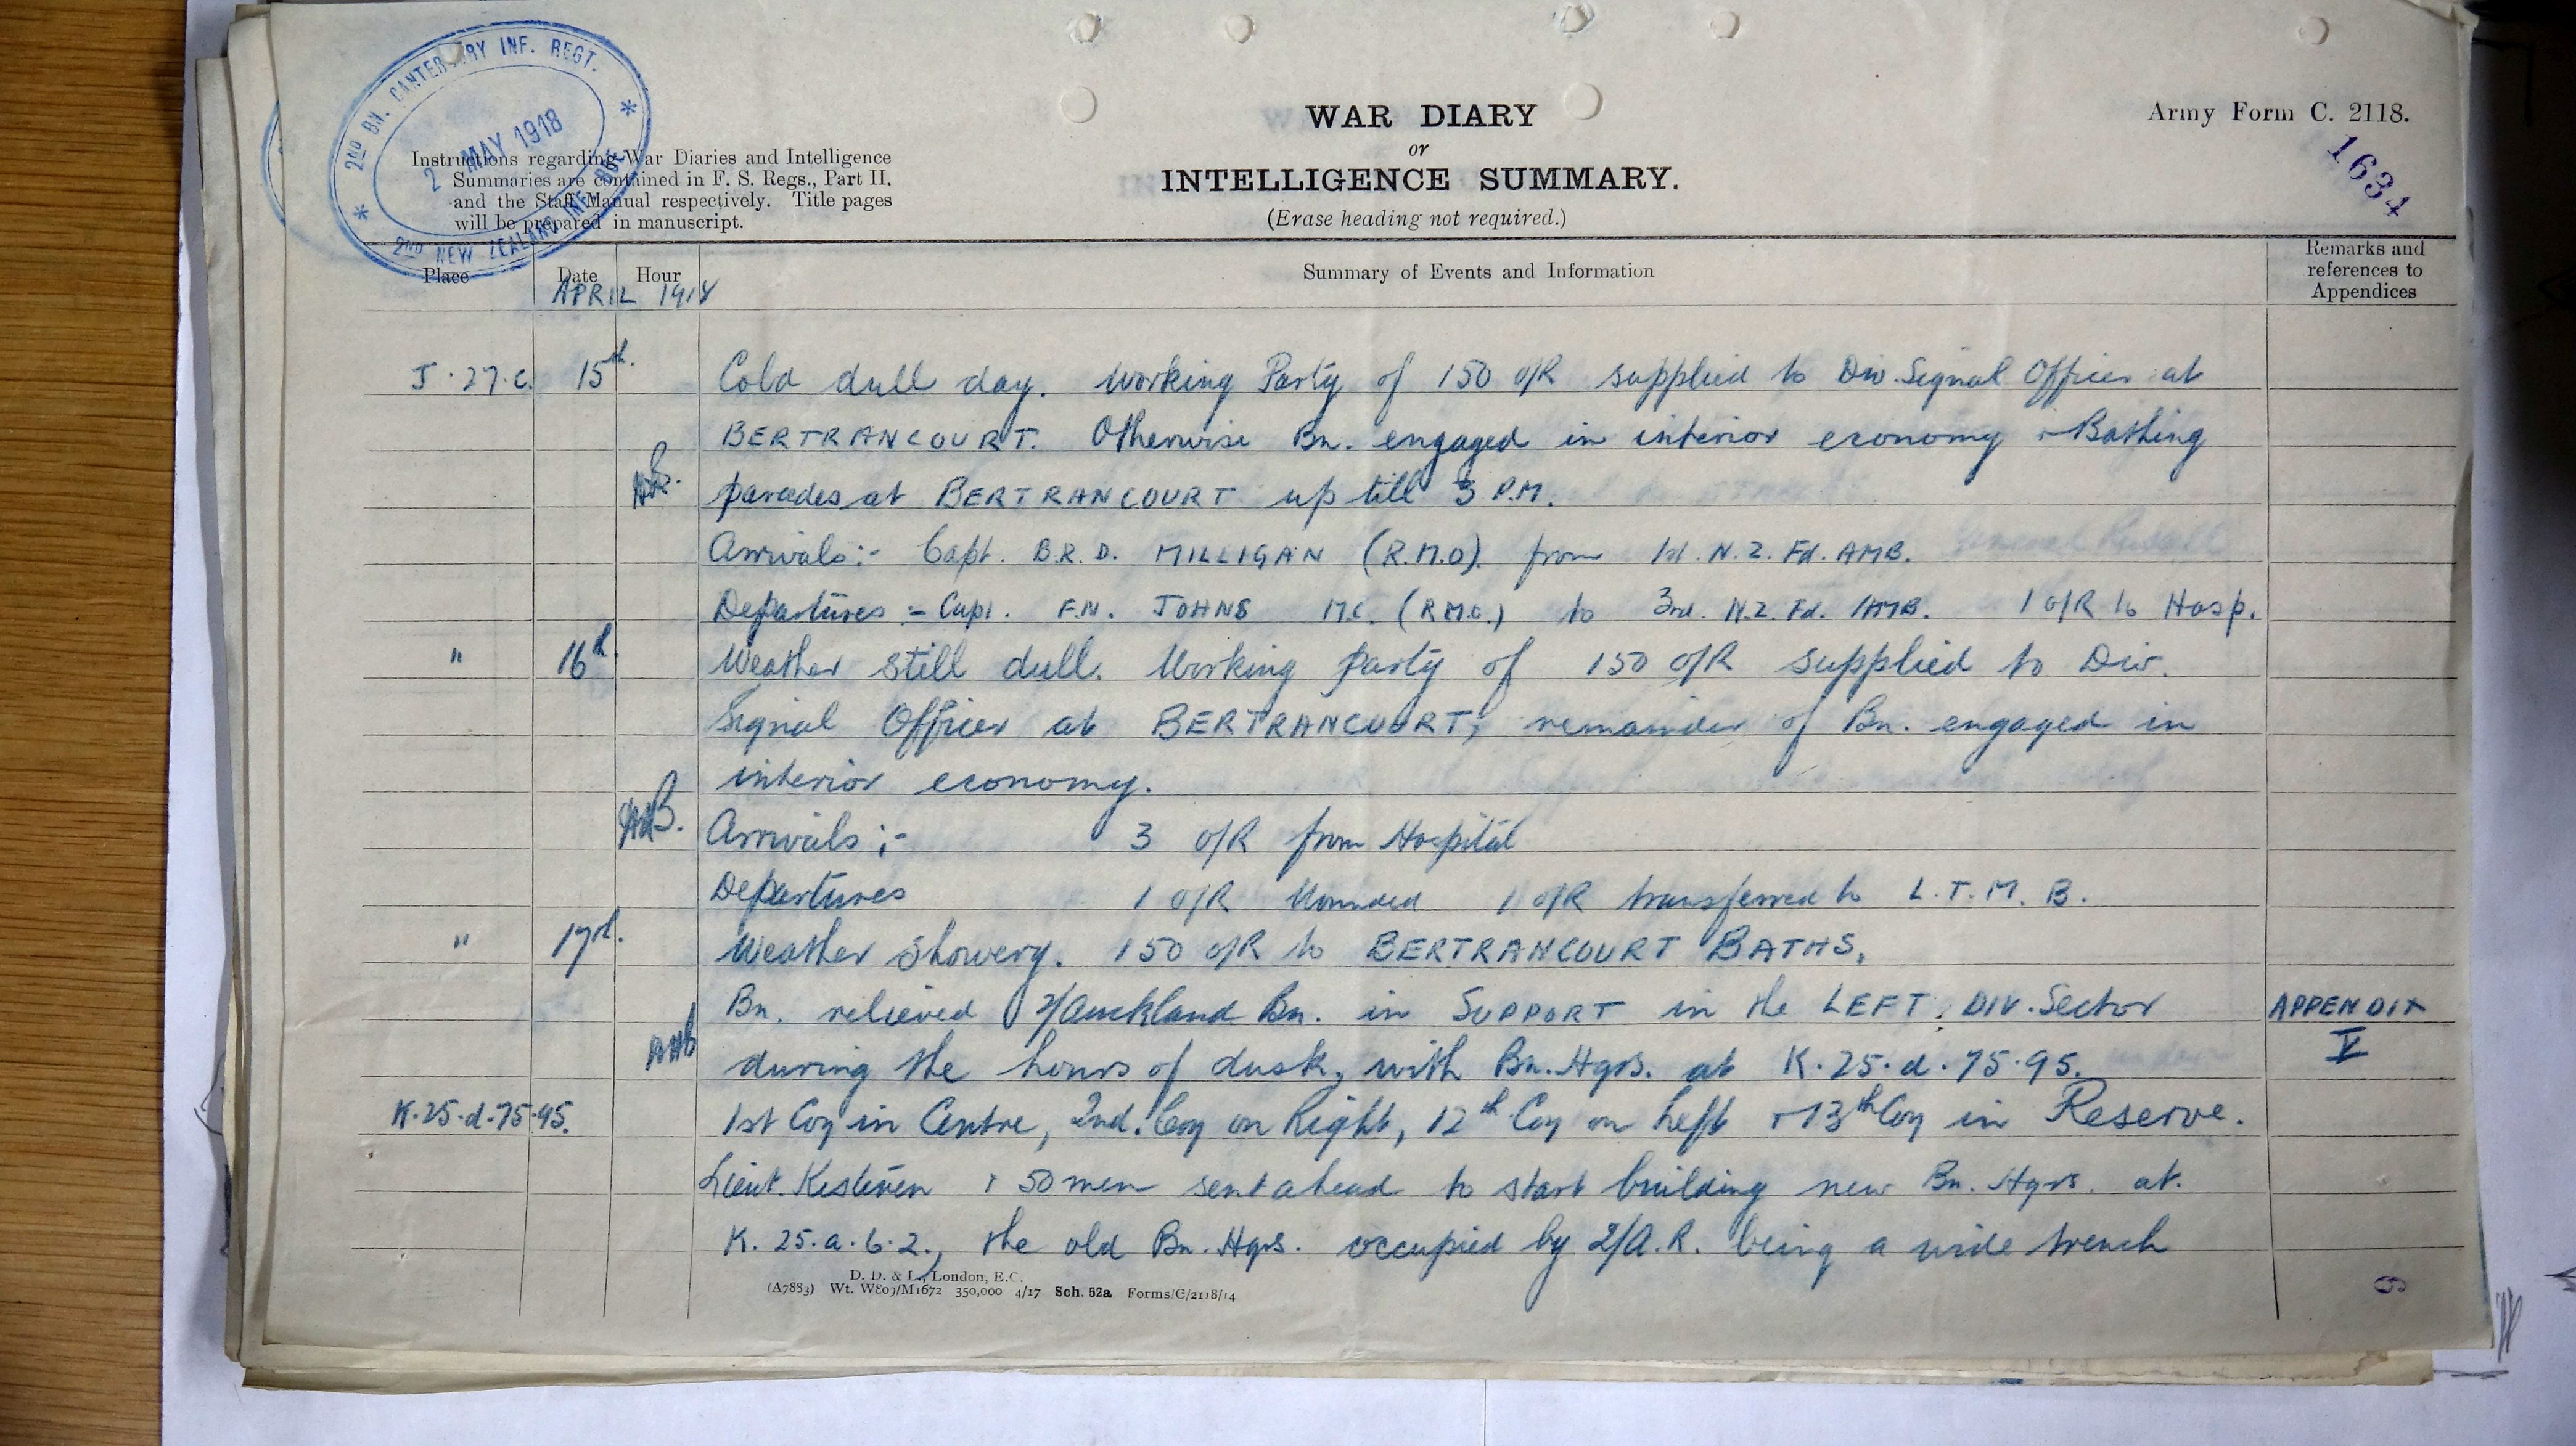 2ND BN. CANTERBURY INF. REGT.
2 MAY 1918
2ND NEW ZEALAND INF. BDE
WAR DIARY
or
INTELLIGENCE SUMMARY.
(Erase heading not required.)
Army Form C. 2118.
1634
Instructions regarding War Diaries and Intelligence
Summaries are contained in F. S. Regs., Part II.
and the Staff Manual respectively. Title pages
will be prepared in manuscript.
Place Date Hour Summary of Events and Information Remarks and references to Appendices
APRIL 1918
J.27.c. 15th. Cold dull day. Working Party of 150 O/R supplied to Div. Signal Officer at
BERTRANCOURT. Otherwise Bn. engaged in interior economy & Bathing
parades at BERTRANCOURT up till 3 P.M.
Arrivals:- Capt. B.R.D. MILLIGAN (R.M.O). from 1st. N.Z. Fd. AMB.
Departures:- Capt. F.N. JOHNS M.C. (R.M.O.) to 3rd. N.Z. Fd. AMB. 1 O/R to Hosp.
" 16th. Weather still dull. Working party of 150 O/R supplied to Div.
Signal Officer at BERTRANCOURT; remainder of Bn. engaged in
interior economy.
Arrivals:- 3 O/R from Hospital
Departures 1 O/R Wounded 1 O/R transferred to L.T.M.B.
" 17th. Weather showery. 150 O/R to BERTRANCOURT BATHS.
Bn. relieved 2/Auckland Bn. in SUPPORT in the LEFT DIV. Sector APPENDIX
during the hours of dusk, with Bn. Hqrs. at K.25.d.75.95. V
K.25.d.75.95. 1st Coy in Centre, 2nd. Coy on Right, 12th Coy on Left & 13th Coy in Reserve.
Lieut. Kesteven & 50 men sent ahead to start building new Bn. Hqrs. at.
K.25.a.6.2., the old Bn. Hqrs. occupied by 2/A.R. being a wide trench
D. D. & L., London, E.C.
(A7883) Wt. W809/M1672 350,000 4/17 Sch. 52a Forms/C/2118/14